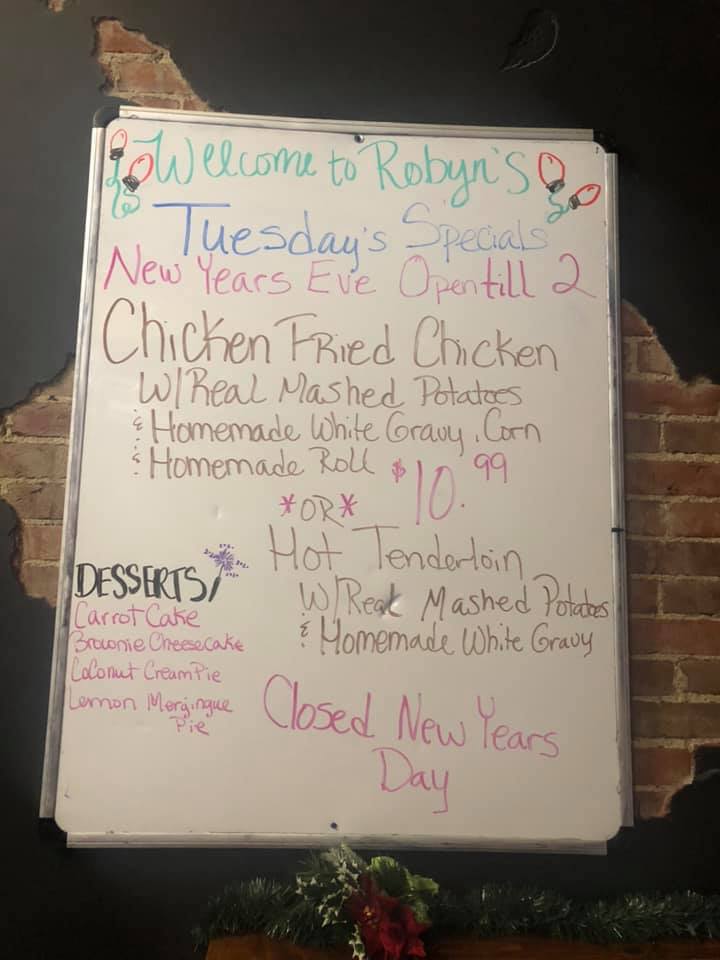 Welcome to Robyn's
Tuesday's Specials
New Years Eve Open till 2
Chicken Fried Chicken
W/Real Mashed Potatoes
& Homemade White Gravy, Corn
& Homemade Roll $10.99
*OR*
Hot Tenderloin
W/Real Mashed Potatoes
& Homemade White Gravy
DESSERTS
Carrot Cake
Brownie Cheesecake
Coconut Cream Pie
Lemon Mergingue
Pie
Closed New Years
Day